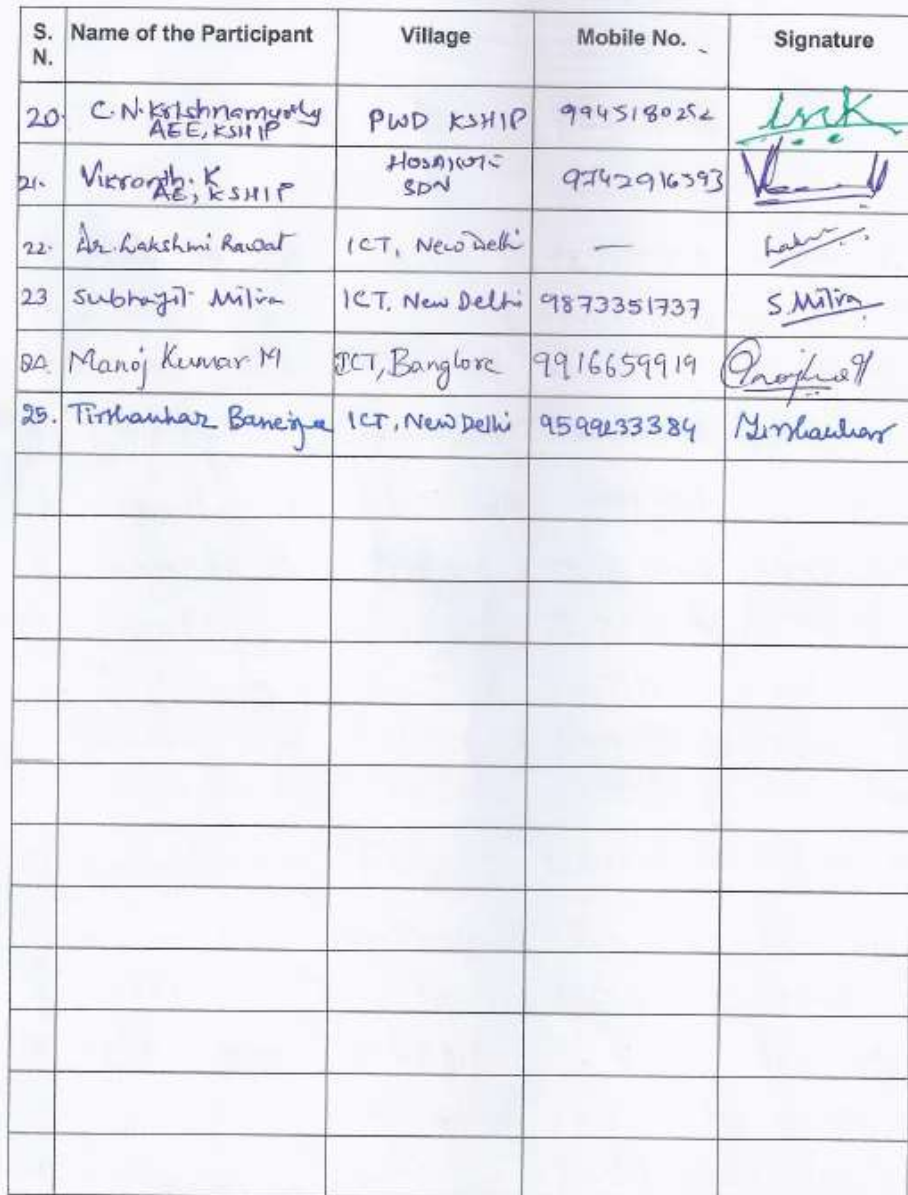 S. N. Name of the Participant Village Mobile No. Signature
20. C.N. Krishnamurthy AEE, KSHIP PWD KSHIP 9945180252
21. Vikranth. K AE, KSHIP SDN 9742916393
22. Dr. Lakshmi Rawat ICT, New Delhi —
23 Subhajit Mitra ICT, New Delhi 9873351737 S. Mitra
24. Manoj Kumar M ICT, Banglore 9916659919
25. Tirthankar Banerjee ICT, New Delhi 9599233384 Tirthankar